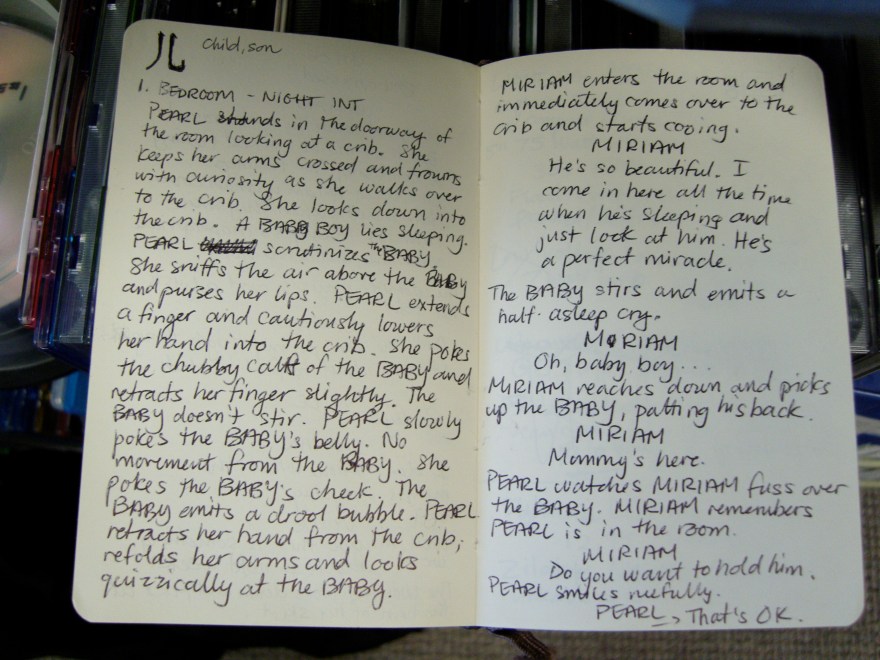 儿 child, son
1. BEDROOM - NIGHT INT
PEARL stands in the doorway of
the room looking at a crib. She
keeps her arms crossed and frowns
with curiosity as she walks over
to the crib. She looks down into
the crib. A BABY BOY lies sleeping.
PEARL scrutinizes the BABY.
She sniffs the air above the BABY
and purses her lips. PEARL extends
a finger and cautiously lowers
her hand into the crib. She pokes
the chubby calf of the BABY and
retracts her finger slightly. The
BABY doesn't stir. PEARL slowly
pokes the BABY's belly. No
movement from the BABY. She
pokes the BABY's cheek. The
BABY emits a drool bubble. PEARL
retracts her hand from the crib,
refolds her arms and looks
quizzically at the BABY.
MIRIAM enters the room and
immediately comes over to the
crib and starts cooing.
MIRIAM
He's so beautiful. I
come in here all the time
when he's sleeping and
just look at him. He's
a perfect miracle.
The BABY stirs and emits a
half-asleep cry.
MIRIAM
Oh, baby boy...
MIRIAM reaches down and picks
up the BABY, patting his back.
MIRIAM
Mommy's here.
PEARL watches MIRIAM fuss over
the BABY. MIRIAM remembers
PEARL is in the room.
MIRIAM
Do you want to hold him.
PEARL smiles ruefully.
PEARL → That's OK.